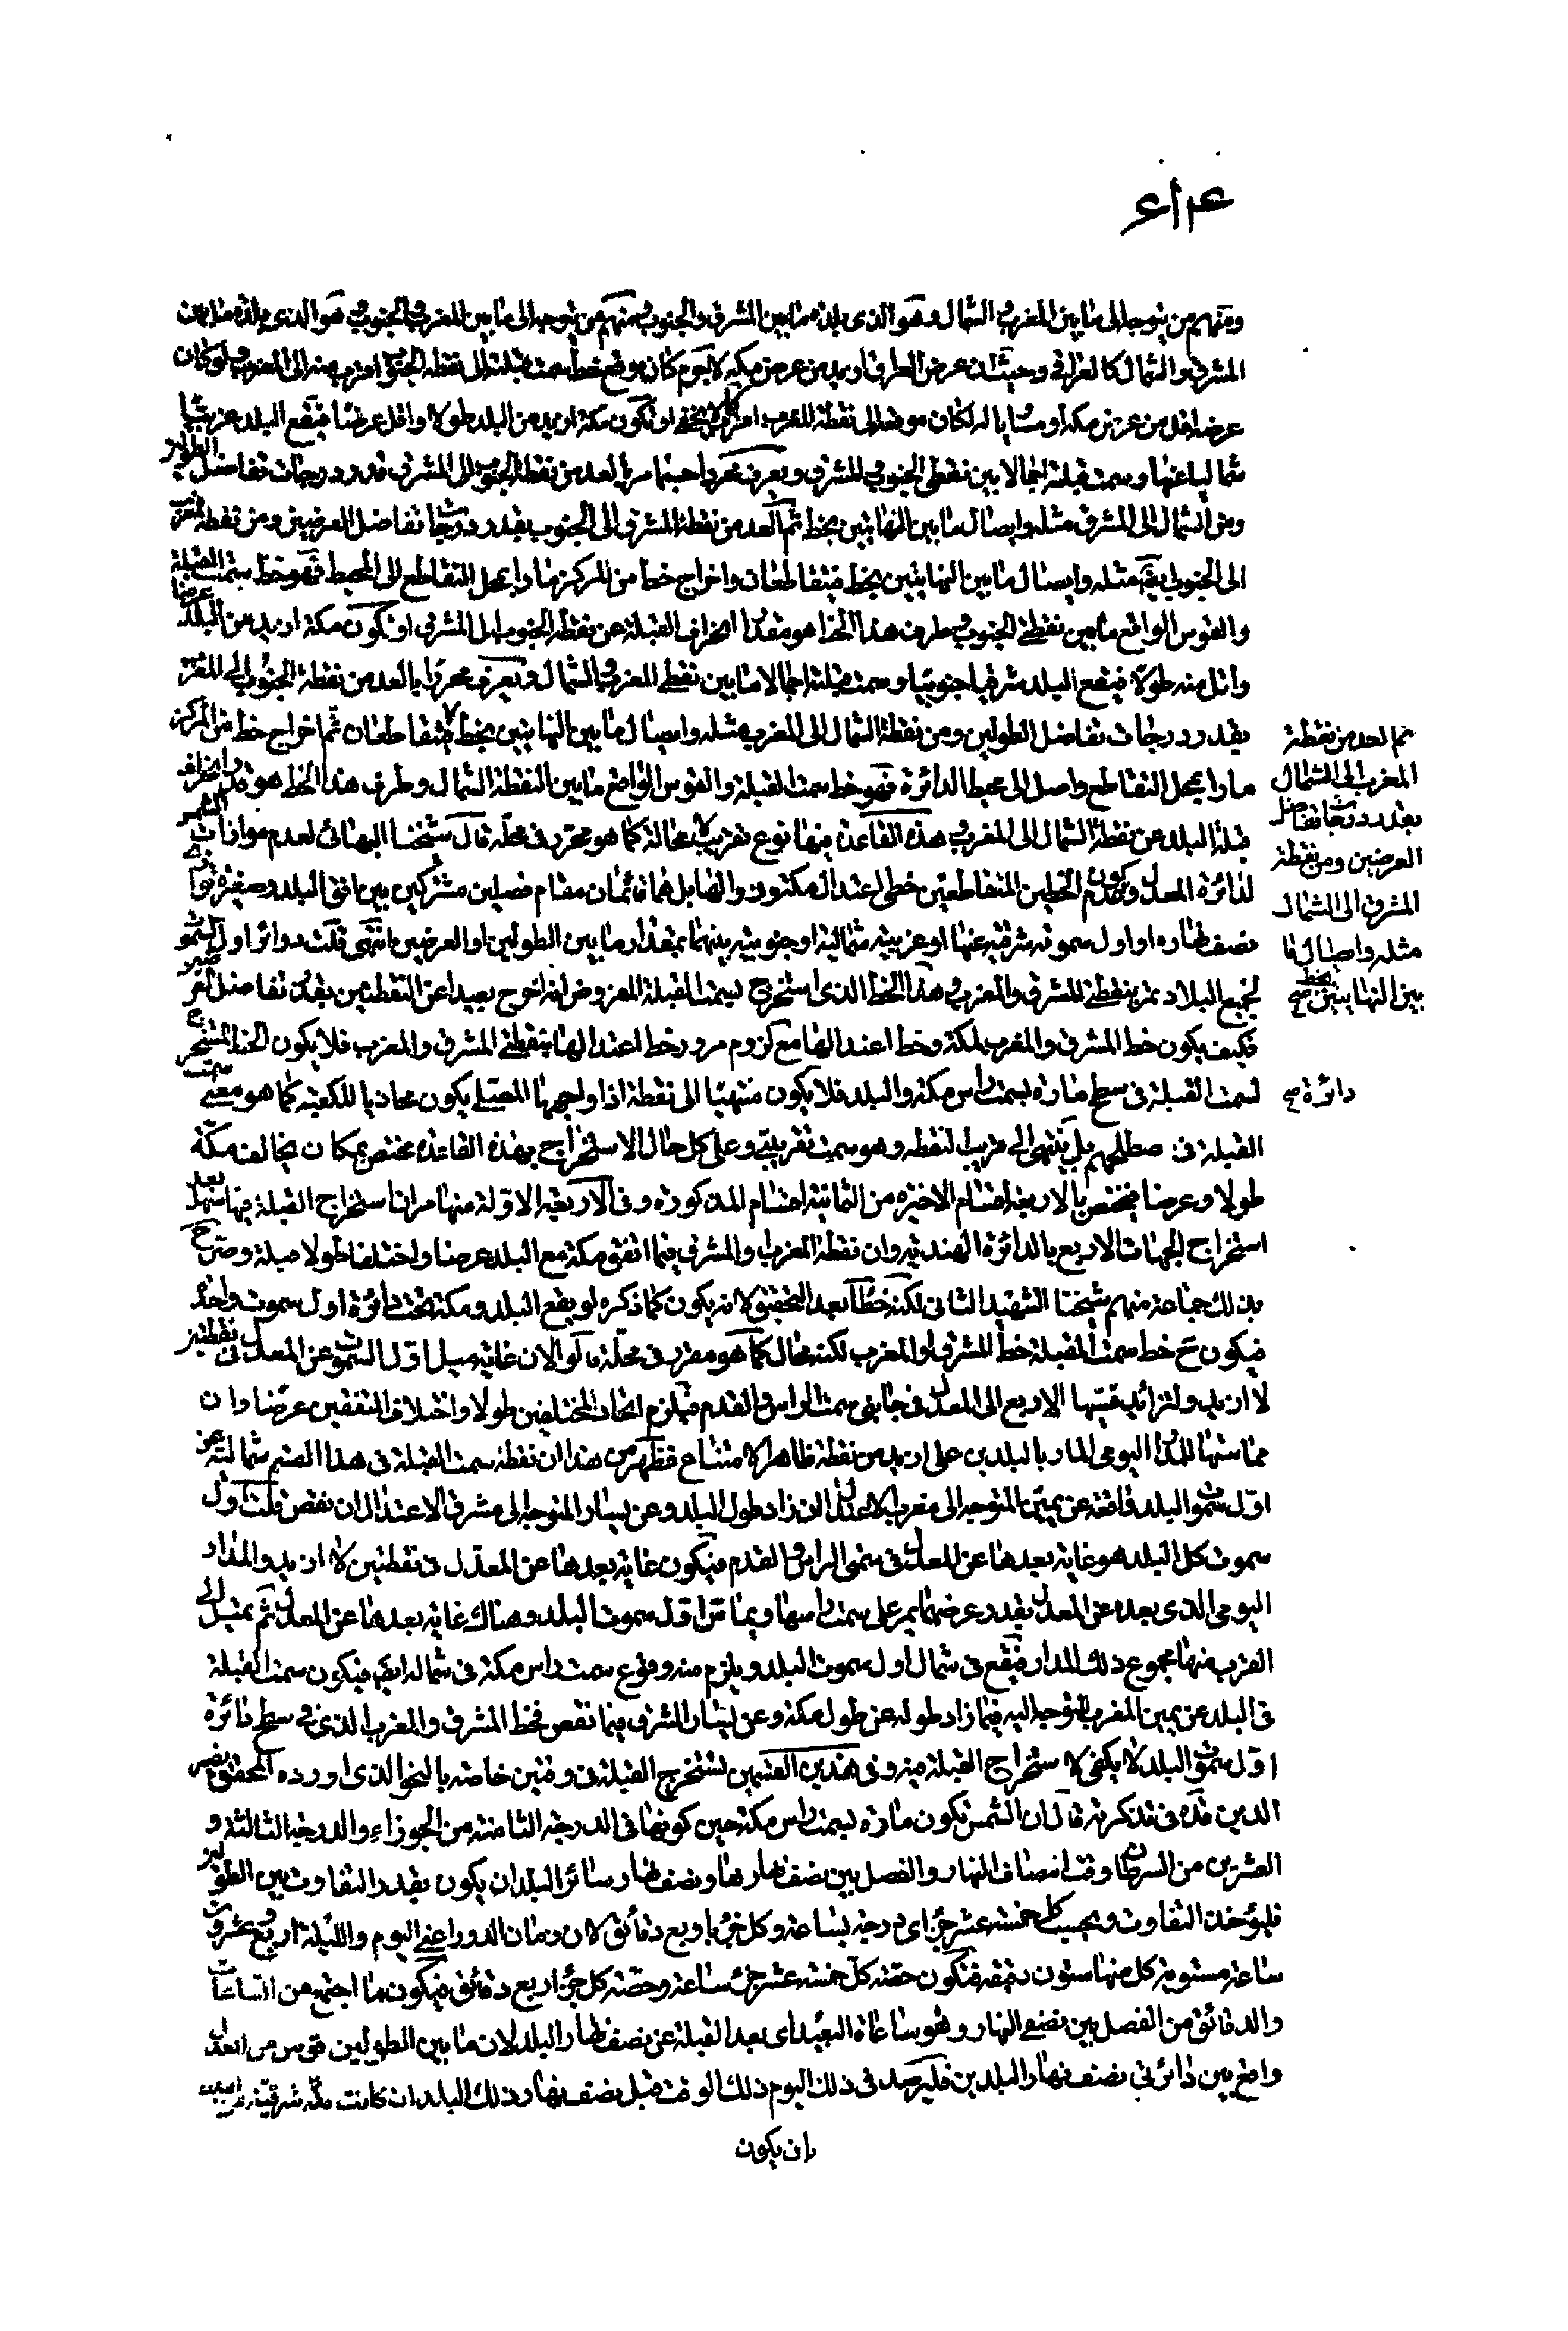 ومنهم من يتوجه الى ما بين المغرب والشمال وهو الذى بلده مما بين المشرق والجنوب ومنهم من يتوجه الى ما بين المغرب والجنوب هو الذى بلده مما بين
المشرق والشمال كالعراقى وحيث ان عرض العراق ازيد من عرض مكه لاجرم كان موقع خط سمت قبلته الى نقطة الجنوب اقرب منه الى المغرب ولو كان
عرضه اقل من عرض مكه او مساويا له لكان موقعه الى نقطة المغرب اقرب كما لا يخفى او تكون مكة ازيد من البلد طولا واقل عرضا فيقع البلد غربيا
شماليا عنها وسمت قبلته اجمالا بين نقطتى الجنوب والمشرق ويعرف محررا حسبما مر بالعد من نقطة الجنوب الى المشرق قدر درجات تفاضل الطولين
ومن الشمال الى المشرق مثله وايصال ما بين النهايتين بخط ثم العد من نقطة المشرق الى الجنوب بقدر درجات تفاضل العرضين ومن نقطة المغرب
الى الجنوب ايضا مثله وايصال ما بين النهايتين بخط فيتقاطعان واخراج خط من المركز مارا بمحل التقاطع الى المحيط فهو خط سمت القبلة
والقوس الواقع ما بين نقطة الجنوب وطرف هذا الخط هو مقدار انحراف القبلة عن نقطة الجنوب الى المشرق او تكون مكة ازيد من البلد عرضا
واقل منه طولا فيقع البلد شرقيا جنوبيا وسمت قبلته اجمالا ما بين نقطتى المغرب والشمال ويعرف محررا بالعد من نقطة الجنوب الى المغرب
بقدر درجات تفاضل الطولين ومن نقطة الشمال الى المغرب مثله وايصال ما بين النهايتين بخط فيتقاطعان ثم اخراج خط من المركز
ثم العد من نقطة
المغرب الى الشمال
بقدر درجات تفاضل
العرضين ومن نقطة
المشرق الى الشمال
مثله وايصال ما
بين النهايتين بخط صح
مارا بمحل التقاطع واصل الى محيط الدائرة فهو خط سمت القبلة والقوس الواقع ما بين النقطة الشمال وطرف هذا الخط هو قدر انحراف
قبلة البلد عن نقطة الشمال الى المغرب وهذه القاعدة فيها نوع تقريب لا محالة كما هو محرر فى محله قال شيخنا البهائى لعدم موازات
لدائرة المعدل وعدم كون الخطين المتقاطعين خطى اعتدال مكة ونصف بل هما قائمان مقام فصلين مشتركين بين افق البلد وصغيرة توازى
نصف نهاره او اول سموته شرقيه عنها او غربيته شمالية او جنوبيته بينهما بمقدار ما بين الطولين او العرضين انتهى قلت دوائر اول السموت
لجميع البلاد تمر بنقطتى المشرق والمغرب وهذا الخط الذى استخرج لسمت القبلة المفروض انه اخرج بعيدا عن النقطتين بقدر تفاضل
فكيف يكون خط المشرق والمغرب لمكة وخط اعتدالها مع لزوم مرور خط اعتدالها بنقطتى المشرق والمغرب فلا يكون الخط المستخرج
لسمت القبلة فى سطح مارة بسمت راس مكة والبلد فلا يكون منتهيا الى نقطة اذا واجهها المصلى يكون محاذيا للكعبة كما هو معنى سمت
دائرة صح
القبلة فى صطلحهم بل ينتهى الى قريب النقطه وهو سمت تقريبى وعلى كل حال الاستخراج بهذه القاعدة مختص بمكان يخالف مكة
طولا وعرضا فيختص بالاربعة اقسام الاخيرة من الثمانية اقسام المذكورة وفى الاربعة الاولة منها مر ان استخراج القبلة فيها سهل بعد
استخراج الجهات الاربع بالدائرة الهنديه وان نقطة المغرب والمشرق فيما اتفق مكة مع البلد عرضا واختلفا طولا قبلة وصرح
بذلك جماعة منهم شيخنا الشهيد الثانى لكنه خطأ بعد التحقيق لانه يكون كما ذكره لو يقع البلد ومكة تحت دائرة اول سموت واحد
فيكون ح خط سمت القبلة خط المشرق والمغرب لكنه محال كما هو مقرر فى محله قالوا لان غاية ميل اول السموت عن المعدل فى نقطتين
لا ازيد ولتزايد قسيتها الاربع الى المعدل فى جانبى سمت الراس والقدم فيلزم اتحاد المختلفين طولا واختلاف المتفقين عرضا وان
مماستها للمدار اليومى المار بالبلدين على ازيد من نقطة ظاهر الامتناع فظهر من هذا ان نقطة سمت القبلة فى هذا القسم شمالية عن
اول سموت البلد فاقعة عن يمين المتوجه الى مغرب الاعتدال ان زاد طول البلد وعن يسار المتوجه الى مشرق الاعتدال ان نقص قلت اول
سموت كل البلد هو غاية بعدها عن المعدل فى سمتى الراس والقدم فيكون غاية بعدها عن المعدل فى نقطتين لا ازيد والمدار
اليومى الذى بعده عن المعدل بقدر عرضهما يمر على سمت راسها ويماس اول سموت البلد وهناك غاية بعدها عن المعدل ثم تميل الى
القرب منها مجموع ذلك المدار فيقع فى شمال اول سموت البلد ويلزم منه وقوع سمت راس مكة فى شماله ايضا فيكون سمت القبلة
فى البلد عن يمين المغرب المتوجه اليه فيما زاد طوله عن طول مكة وعن يسار المشرق فيما نقص فخط المشرق والمغرب الذى فى سطح دائرة
اول سموت البلد لا يكفى لاستخراج القبلة منه وفى هذين القسمين تستخرج القبلة فى وقتين خاصة بالنحو الذى اورده المحقق نصير
الدين قده فى تذكرته قال ان الشمس تكون مارة بسمت راس مكة حين كونها فى الدرجة الثامنة من الجوزاء والدرجة الثالثة و
العشرين من السرطان وقت انتصاف النهار والفصل بين نصف نهارها ونصف نهار سائر البلدان يكون بقدر التفاوت بين الطولين
فليؤخذ التفاوت ويحسب كل خمسة عشر جزء اى درجة بساعة وكل جزء باربع دقائق لان زمان الدور اعنى اليوم والليلة اربع وعشرون
ساعة مستوية كل منها ستون دقيقه فتكون حصة كل خمسة عشر جزء ساعة وحصة كل جزء اربع دقائق فيكون ما اجتمع من الساعات
والدقائق من الفصل بين نصفى النهار وهو ساعات البعد اى بعد القبلة عن نصف نهار البلد لان ما بين الطولين قوس من المعدل
واقع بين دائرتى نصف نهار البلدين فليرصد فى ذلك اليوم ذلك الوقت قبل نصف نهار ذلك البلد ان كانت مكة شرقية
بان يكون